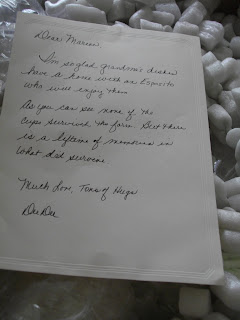 Dear Marcie,
I'm so glad grandma's dishes
have a home with an Esposito
who will enjoy them.
As you can see none of the
cups survived the fire. But there
is a lifetime of memories in
what did survive
Much Love, Tons of Hugs
Dee Dee